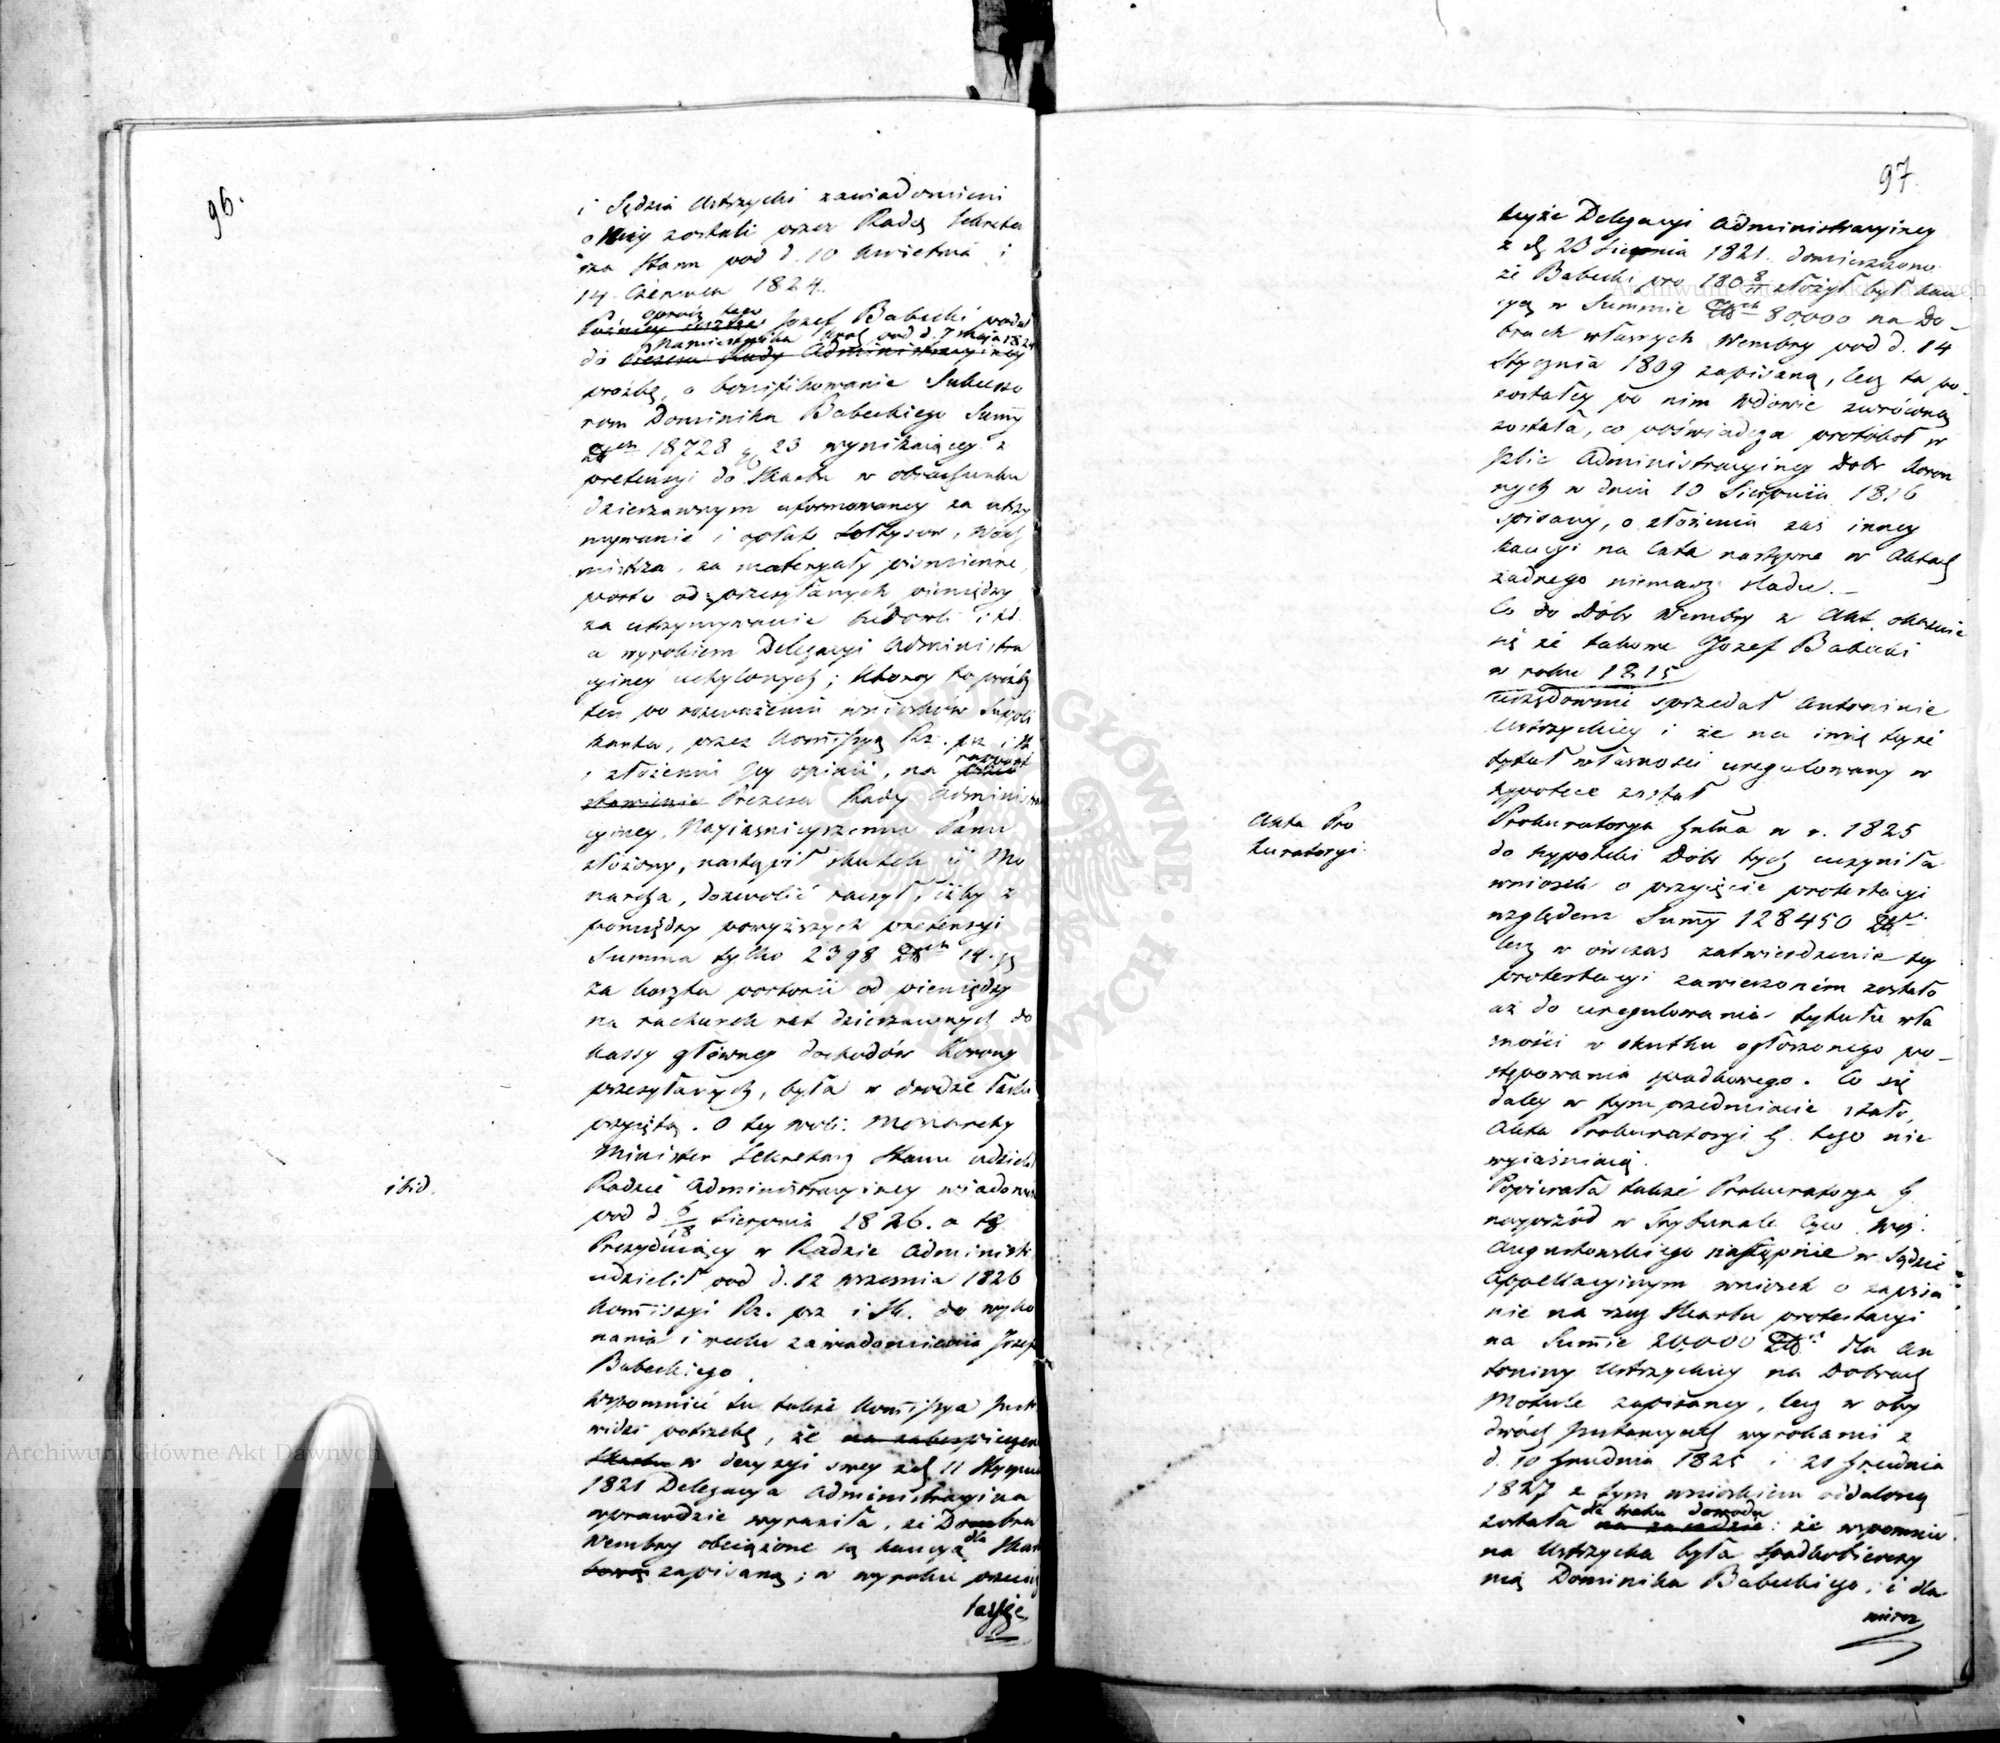 96.
i Sędzia Ustrzycki zawiadomieni
o tey zostali przez Radcę Sekreta
rza Stanu pod d. 10 Kwietnia i
14 Czerwca 1824.
oprócz tego
Józef Babecki podał
Namiestnika Król. pod d. 7 Maja 1824
do Prezesa Rady Administracyiney
prośbę, o bonifikowanie Sukcesso
rom Dominika Babeckiego Summy
Złch 18728 gr 23 wynikaiącey z
pretensyi do Skarbu w obrachunku
dzierżawnym uformowaney za utrzy
mywanie i opłatę Sołtysów, Woch
mistrza, za materyały piśmienne,
porto od przesyłanych pieniędzy
za utrzymywanie budowli i td.
a wyrokiem Delegacyi Administra
cyiney uchylonych; który to prośby
ten po rozważeniu wniosków Suppli
kanta, przez Kommissyą Rz. prz. i Sk.
i złożeniu Jey opinii, na raport
stawienie Prezesa Rady Administra
cyiney, Nayiaśnieyszemu Panu
złożony, nastąpił skutek iż Mo
narcha, dozwolić raczył, iżby z
pomiędzy powyższych pretensyi
Summa tylko 2398 Złch 14 gr
za koszta portorii od pieniędzy
na rachunek rat dzierżawnych do
kassy główney dochodów Korony
przesyłanych, była w drodze łaski
przyięta. O tey woli Monarchy
Minister Sekretarz Stanu udzielił
ibid.
Radzie Administracyiney wiadomość
pod d 6/18 Sierpnia 1826. a ta
Prezyduiący w Radzie Administr
udzielił pod d. 12 września 1826
Kommissyi Rz. prz i Sk. do wyko
nania i w celu zawiadomienia Józefa
Babeckiego.
Wspomnieć tu także Kommissya Jest
widzi potrzebę, że na zabezpieczenie
Skarbu w decyzyi swey z d. 11 Stycznia
1821 Delegacya Administracyina
wprawdzie wyraziła, że Dobra
Wembry obciążone są kaucyą dla Skar
bową zapisaną; w wyroku
tayże
97.
teyże Delegacyi Administracyiney
z d. 23 Sierpnia 1821. domieszczono
że Babecki pro 180 8/9 złożył był kau
cyą w Summie Złch 80,000 na Do-
brach własnych Wembry pod d. 14
Stycznia 1809 zapisaną, lecz ta po-
zostałey po nim wdowie zwróconą
została, co poświadcza protokół w
Izbie Administracyiney Dóbr Koron
nych w dniu 10 Sierpnia 1816
spisany, o złożeniu zaś inney
kaucyi na lata następne w Aktach
żadnego niemasz śladu. -
Co do Dóbr Wembry z Akt okazuie
się że takowe Józef Babecki
w roku 1815
urzędownie sprzedał Antoninie
Ustrzyckiey i że na imię teyże
tytuł własności uregulowany w
hypotece został
Akta Pro
kuratoryi.
Prokuratorya Jnlna w r. 1825
do hypoteki Dóbr tych uczyniła
wniosek o przyięcie protestacyi
względem Summy 128450 Złch
lecz w ówczas zatwierdzenie tey
protestacyi zawieszonem zostało
aż do uregulowania tytułu wła
sności w skutku ogłoszonego po-
stępowania spadkowego. Co się
daley w tym przedmiocie stało,
Akta Prokuratoryi J. tego nie
wyiaśniaią.
Popierała także Prokuratorya J.
naprzód w Trybunale Cyw. Woj.
Augustowskiego następnie w Sądzie
Appellacyinym wniosek o zapisa
nie na rzecz Skarbu protestacyi
na Summie 20,000 Złch dla An
toniny Ustrzyckiey na Dobrach
Mokule zapisaney, lecz w oby
dwóch Instancyach wyrokami z
d. 10 Grudnia 1825 i 21 Grudnia
1827 z tym wnioskiem oddaloną
dla braku dowodu
została na zasadzie: że wspomnio
na Ustrzycka była Spadkobierczy
nią Dominika Babeckiego, i dla